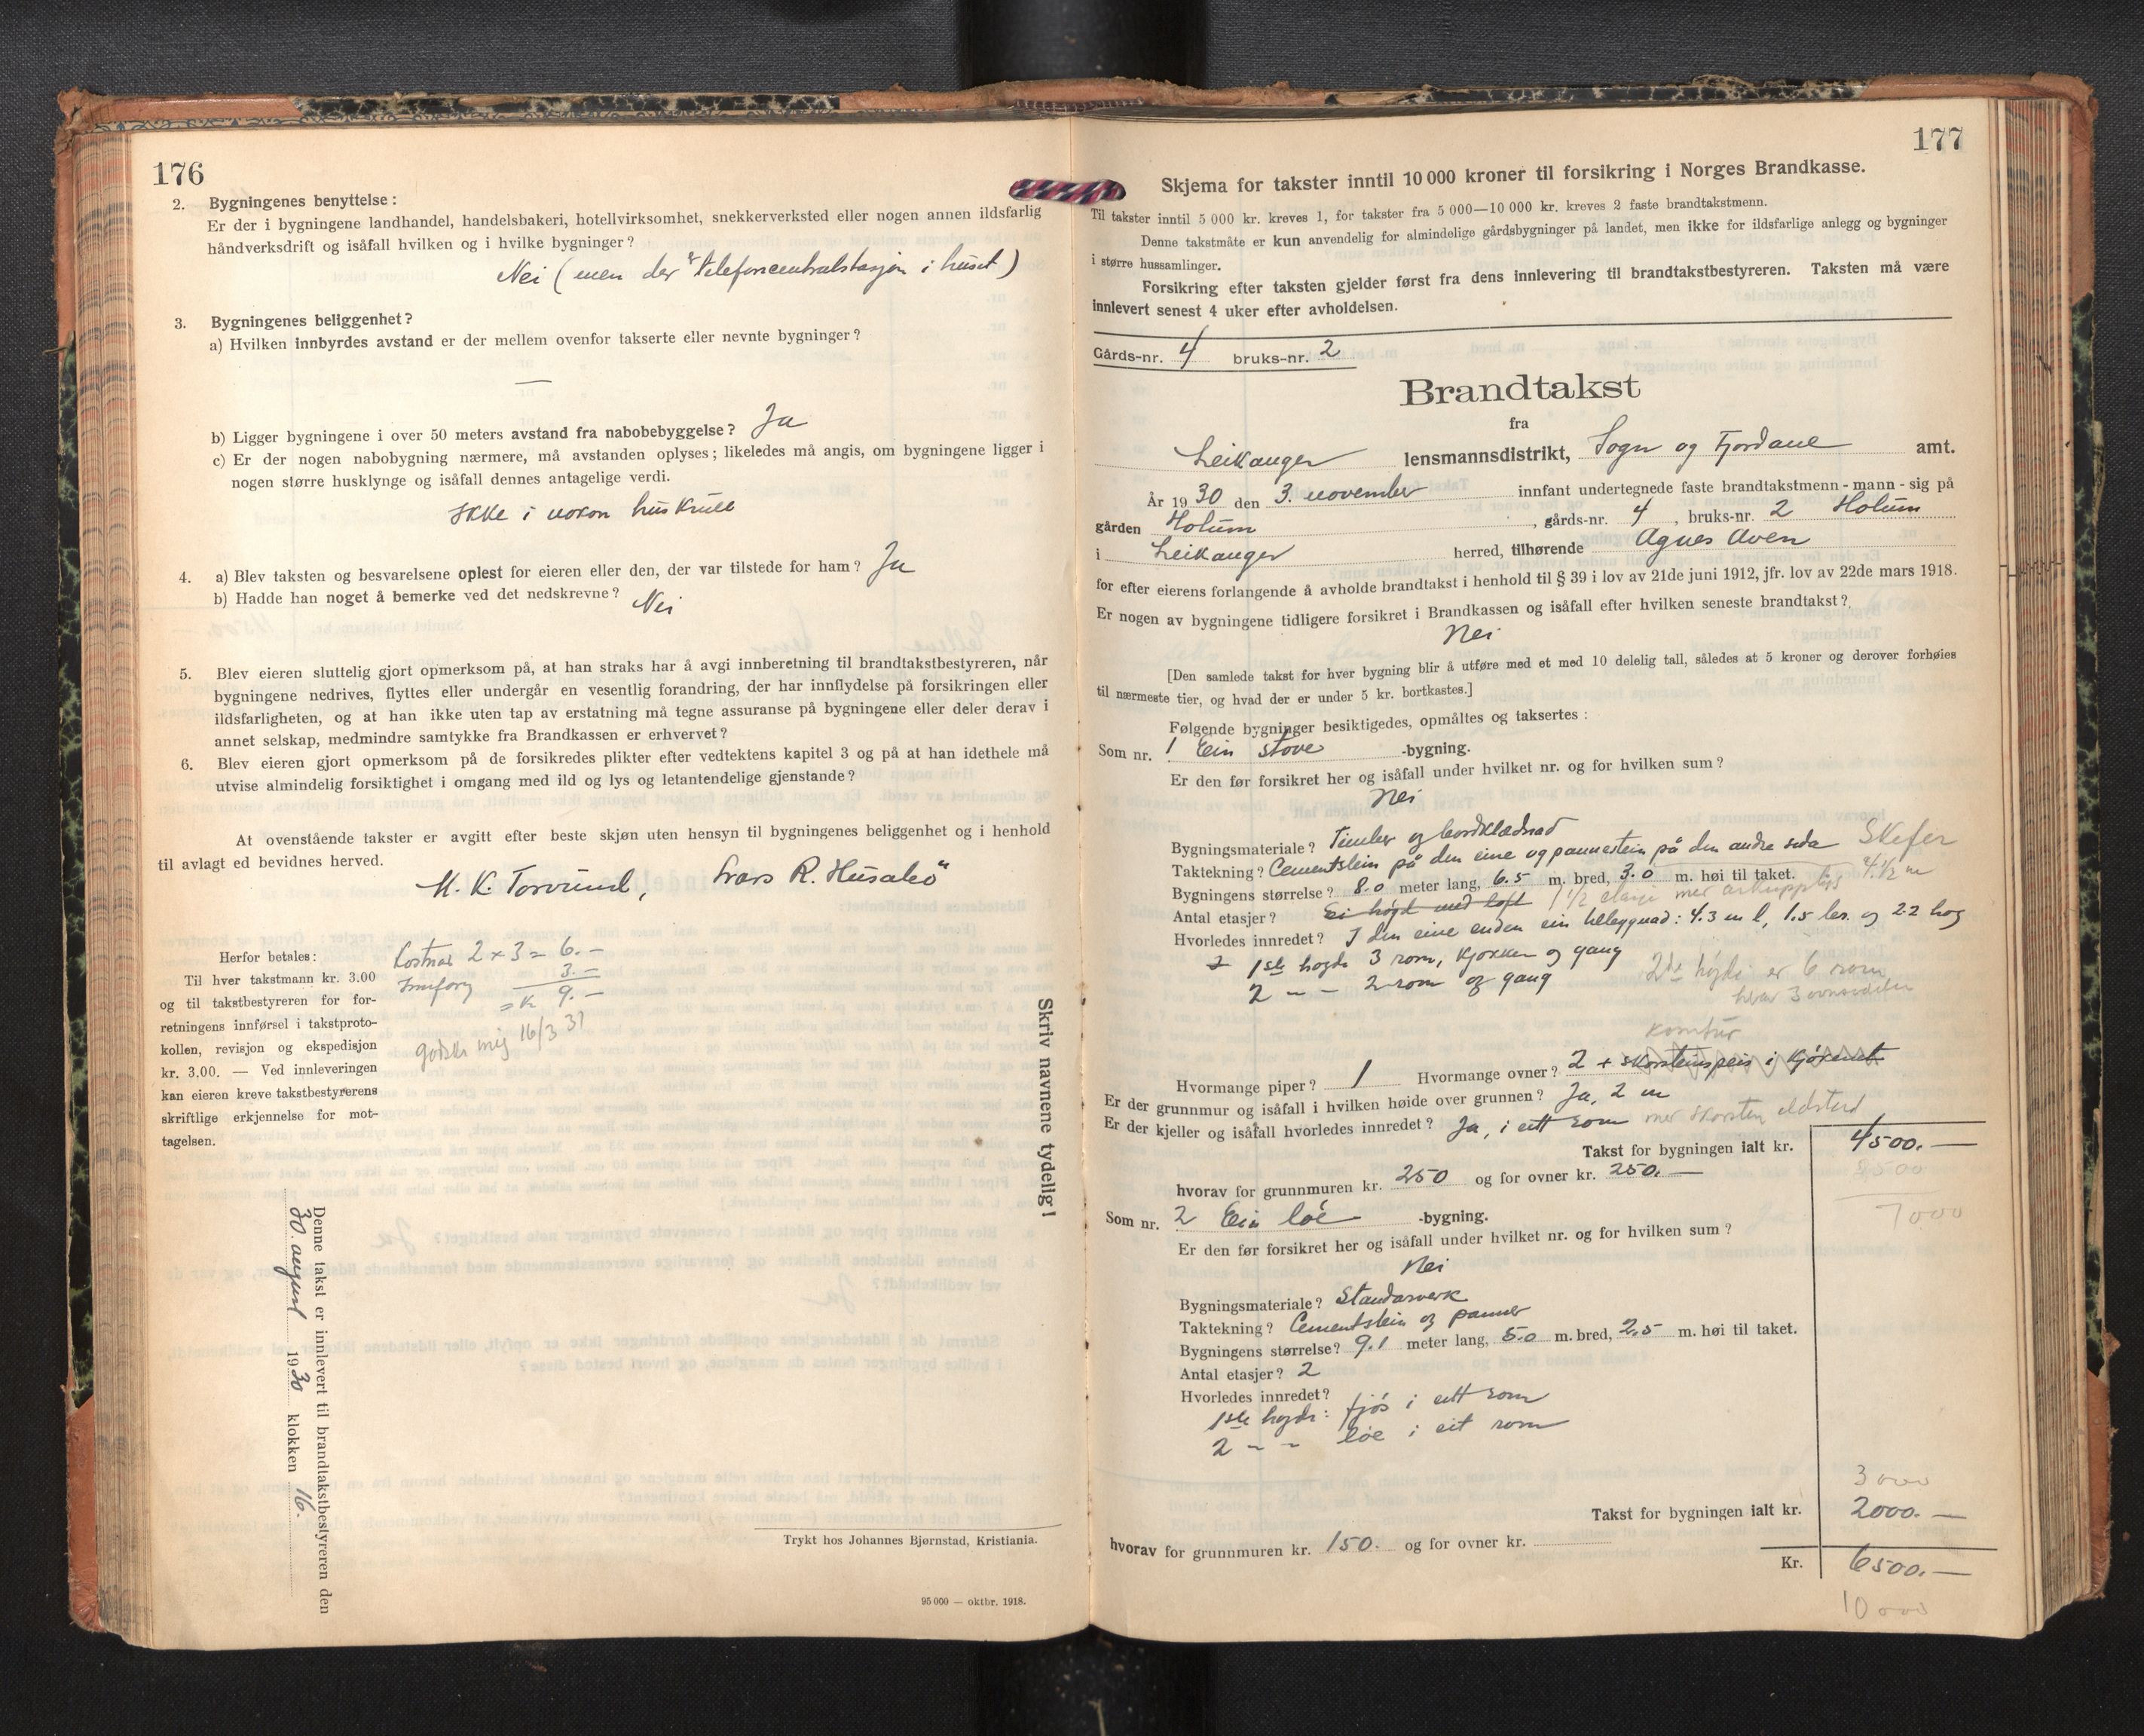 176
2. Bygningenes benyttelse:
Er der i bygningene landhandel, handelsbakeri, hotellvirksomhet, snekkerverksted eller nogen annen ildsfarlig
håndverksdrift og isåfall hvilken og i hvilke bygninger?
Nei (men der er telefoncentralstasjon i huset)
3. Bygningenes beliggenhet?
a) Hvilken innbyrdes avstand er der mellem ovenfor takserte eller nevnte bygninger?
—
b) Ligger bygningene i over 50 meters avstand fra nabobebyggelse? Ja
c) Er der nogen nabobygning nærmere, må avstanden oplyses; likeledes må angis, om bygningene ligger i
nogen større husklynge og isåfall dennes antagelige verdi.
Ikke i nokon huskrull
4. a) Blev taksten og besvarelsene oplest for eieren eller den, der var tilstede for ham? Ja
b) Hadde han noget å bemerke ved det nedskrevne? Nei
5. Blev eieren sluttelig gjort opmerksom på, at han straks har å avgi innberetning til brandtakstbestyreren, når
bygningene nedrives, flyttes eller undergår en vesentlig forandring, der har innflydelse på forsikringen eller
ildsfarligheten, og at han ikke uten tap av erstatning må tegne assuranse på bygningene eller deler derav i
annet selskap, medmindre samtykke fra Brandkassen er erhvervet?
6. Blev eieren gjort opmerksom på de forsikredes plikter efter vedtektens kapitel 3 og på at han idethele må
utvise almindelig forsiktighet i omgang med ild og lys og letantendelige gjenstande?
At ovenstående takster er avgitt efter beste skjøn uten hensyn til bygningenes beliggenhet og i henhold
til avlagt ed bevidnes herved.
M. K. Torvund, Lars R. Husabö
Herfor betales:
Til hver takstmann kr. 3.00
og til takstbestyreren for for-
retningens innførsel i takstproto-
kollen, revisjon og ekspedisjon
kr. 3.00. — Ved innleveringen
kan eieren kreve takstbestyrerens
skriftlige erkjennelse for mot-
tagelsen.
Kostnad 2 x 3 = 6.—
Innføring 3.—
= K 9.—
16/3 31
Skriv navnene tydelig!
Denne takst er innlevert til brandtakstbestyreren den
30. august 1930 klokken 16.
Trykt hos Johannes Bjørnstad, Kristiania.
95 000 — oktbr. 1918.
177
Skjema for takster inntil 10 000 kroner til forsikring i Norges Brandkasse.
Til takster inntil 5 000 kr. kreves 1, for takster fra 5 000—10 000 kr. kreves 2 faste brandtakstmenn.
Denne takstmåte er kun anvendelig for almindelige gårdsbygninger på landet, men ikke for ildsfarlige anlegg og bygninger
i større hussamlinger.
Forsikring efter taksten gjelder først fra dens innlevering til brandtakstbestyreren. Taksten må være
innlevert senest 4 uker efter avholdelsen.
Gårds-nr. 4 bruks-nr. 2
Brandtakst
fra
Leikanger lensmannsdistrikt, Sogn og Fjordane amt.
År 1930 den 3. november innfant undertegnede faste brandtakstmenn - mann - sig på
gården Holum, gårds-nr. 4, bruks-nr. 2 Holum
i Leikanger herred, tilhørende Agnes Aven
for efter eierens forlangende å avholde brandtakst i henhold til § 39 i lov av 21de juni 1912, jfr. lov av 22de mars 1918.
Er nogen av bygningene tidligere forsikret i Brandkassen og isåfall efter hvilken seneste brandtakst?
Nei
[Den samlede takst for hver bygning blir å utføre med et med 10 delelig tall, således at 5 kroner og derover forhøies
til nærmeste tier, og hvad der er under 5 kr. bortkastes.]
Følgende bygninger besiktigedes, opmåltes og taksertes:
Som nr. 1 Ein stove -bygning.
Er den før forsikret her og isåfall under hvilket nr. og for hvilken sum?
Nei
Bygningsmateriale? Timber og bordklædnad
Taktekning? Cementstein på den eine og pannestein på den andre sida Skifer
Bygningens størrelse? 8.0 meter lang, 6.5 m. bred, 3.0 m. høi til taket. 4.½ m
Antal etasjer? Ei høgd med loft 1½ etasje med arkupplett
Hvorledes innredet? I den eine enden ein tilbyggnad: 4.3 m l, 1.5 br. og 2.2 høg
1ste høgda 3 rom, kjøkken og gang
2 - - 2 rom og gang 2de høgda er 6 rom,
herav 3 ovnsvedeler
komfur
Hvormange piper? 1 Hvormange ovner? 2 + skorsteinspeis i kjøkenet
Er der grunnmur og isåfall i hvilken høide over grunnen? Ja, 2 m
Er der kjeller og isåfall hvorledes innredet? Ja, i eitt rom med skorsten eldsted
Takst for bygningen ialt kr. 4500.—
2500
7000
hvorav for grunnmuren kr. 250 og for ovner kr. 250.—
Som nr. 2 Ein löe -bygning.
Er den før forsikret her og isåfall under hvilket nr. og for hvilken sum?
Nei
Bygningsmateriale? Standarverk
Taktekning? Cementstein og panner
Bygningens størrelse? 9.1 meter lang, 5.0 m. bred, 2.5 m. høi til taket.
Antal etasjer? 2
Hvorledes innredet?
1ste høgda: fjós i eitt rom
2 - - löe i eit rom
3000
Takst for bygningen ialt kr. 2000.—
hvorav for grunnmuren kr. 150. og for ovner kr.
Kr. 6500.—
10000